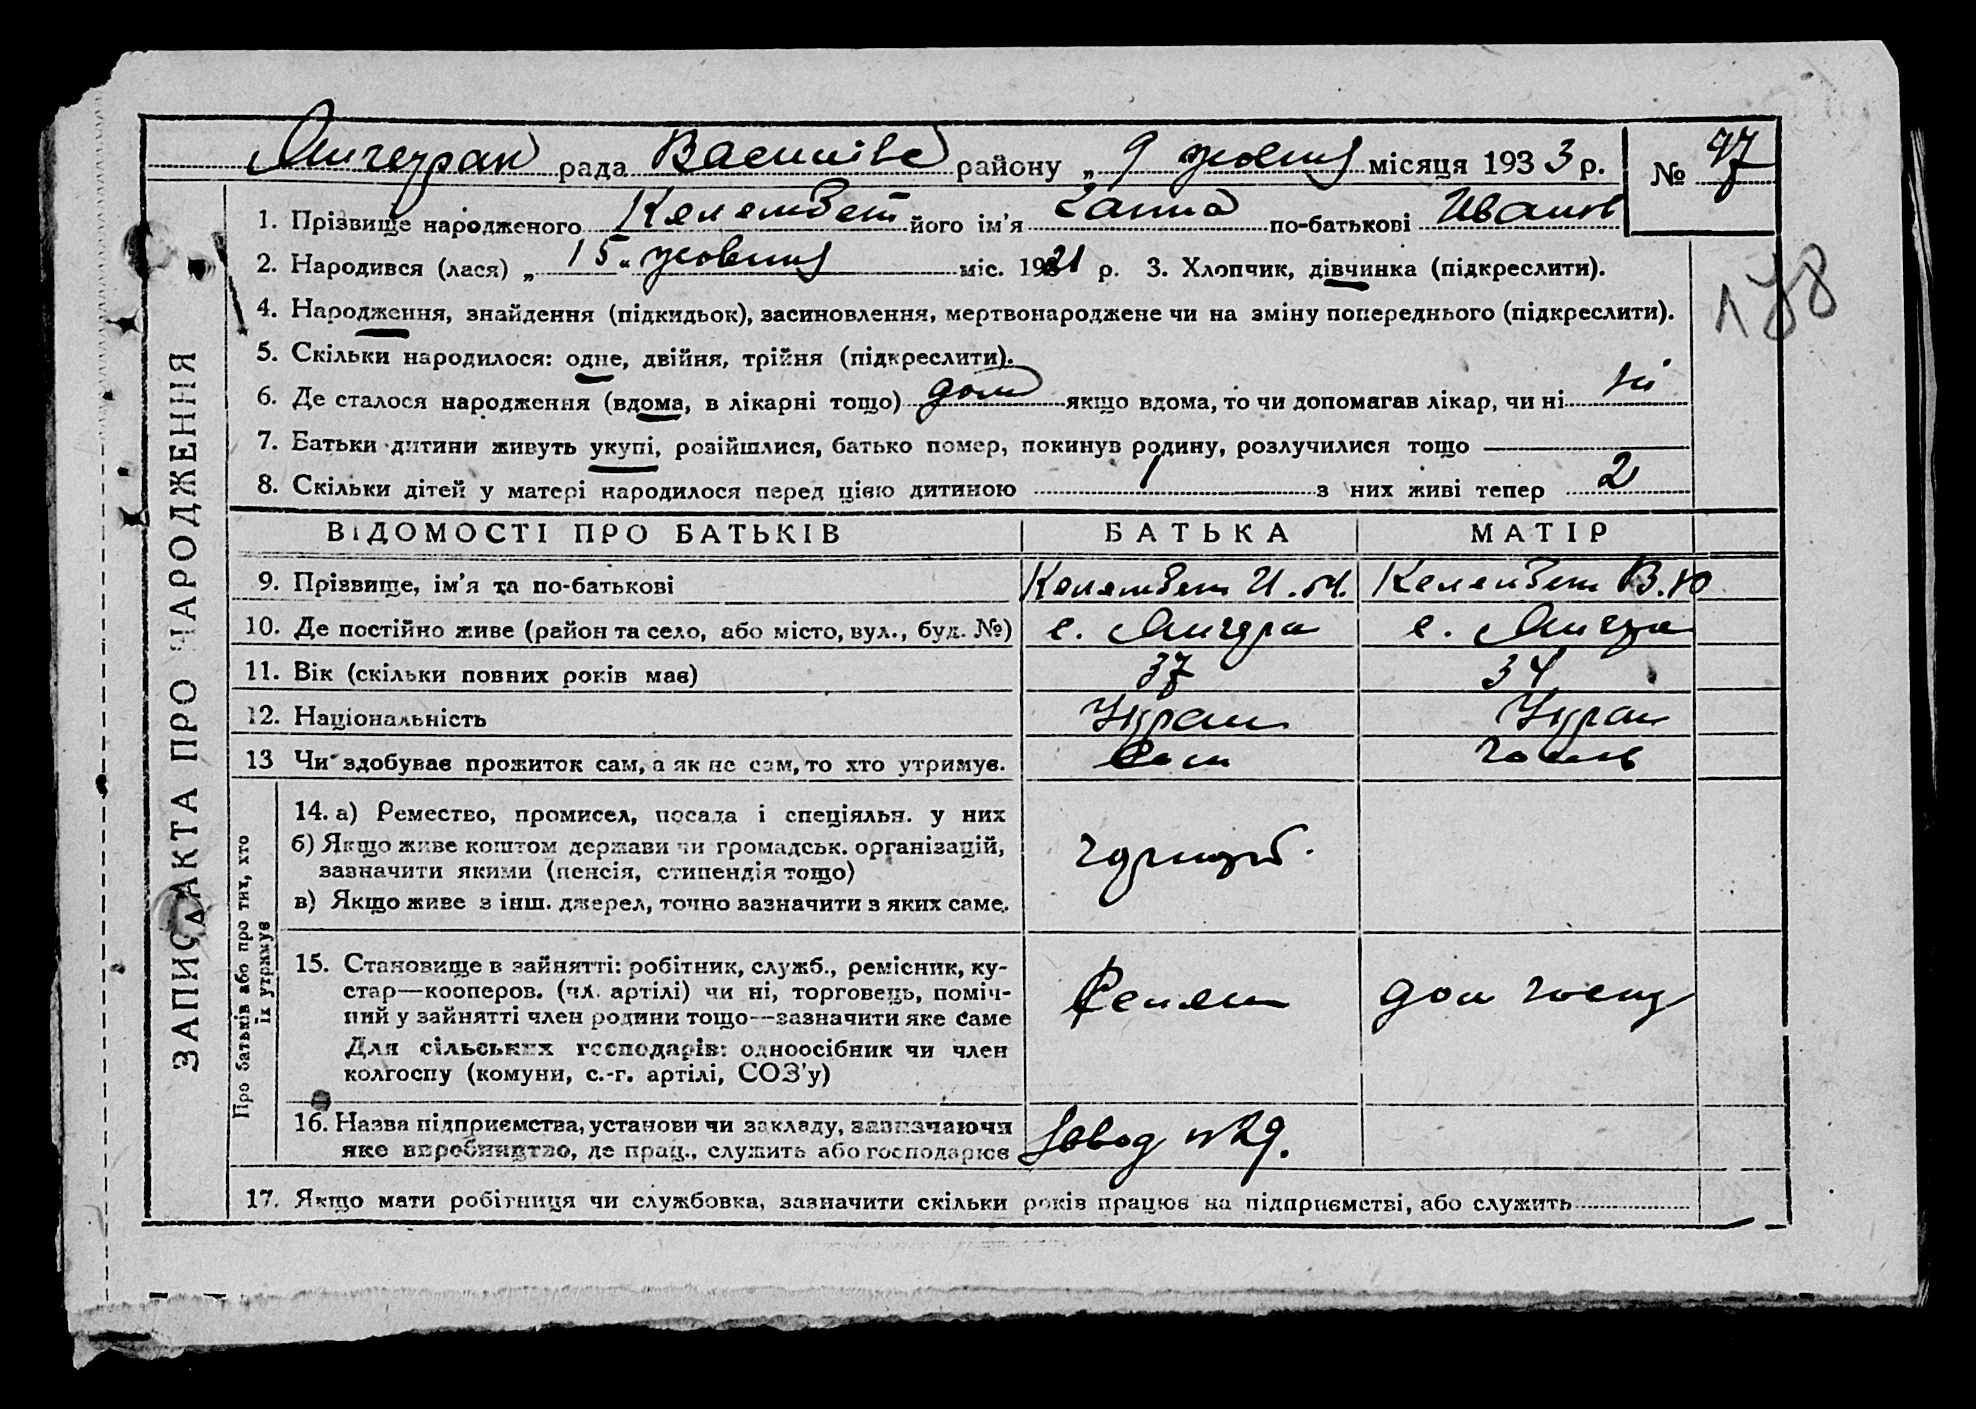 рада Василівс району „ 9 жовтня місяця 1933 р. № 97
1. Прізвище народженого Келембет його ім'я Ганна по-батькові Иванов
2. Народився (лася) „ 15 " жовтня міс. 1921 р. 3. Хлопчик, дівчинка (підкреслити).
178
4. Народження, знайдення (підкидьок), засиновлення, мертвонароджене чи на зміну попереднього (підкреслити).
5. Скільки народилося: одне, двійня, трійня (підкреслити).
6. Де сталося народження (вдома, в лікарні тощо) дом якщо вдома, то чи допомагав лікар, чи ні ні
7. Батьки дитини живуть укупі, розійшлися, батько помер, покинув родину, розлучилися тощо
8. Скільки дітей у матері народилося перед цією дитиною 1 з них живі тепер 2
ЗАПИС АКТА ПРО НАРОДЖЕННЯ
ВІДОМОСТІ ПРО БАТЬКІВ БАТЬКА МАТІР
9. Прізвище, ім'я та по-батькові Келембет И. М. Келембет В. Ю
10. Де постійно живе (район та село, або місто, вул., буд. №) с. с.
11. Вік (скільки повних років має) 37 34
12. Національність Украин Украин
13 Чи здобуває прожиток сам, а як не сам, то хто утримує. Сам
Про батьків або про тих, хто
їх утримує
14. а) Ремество, промисел, посада і спеціяльн. у них
б) Якщо живе коштом держави чи громадськ. організацій,
зазначити якими (пенсія, стипендія тощо)
в) Якщо живе з інш. джерел, точно зазначити з яких саме.
15. Становище в зайнятті: робітник, служб., ремісник, ку-
стар—кооперов. (чл. артілі) чи ні, торговець, поміч-
ний у зайнятті член родини тощо—зазначити яке саме
Для сільських господарів: одноосібник чи член
колгоспу (комуни, с.-г. артілі, СОЗ'у)
дом
16. Назва підприємства, установи чи закладу, зазначаючи
яке виробництво, де прац., служить або господарює
Завод №29.
17. Якщо мати робітниця чи службовка, зазначити скільки років працює на підприємстві, або служить